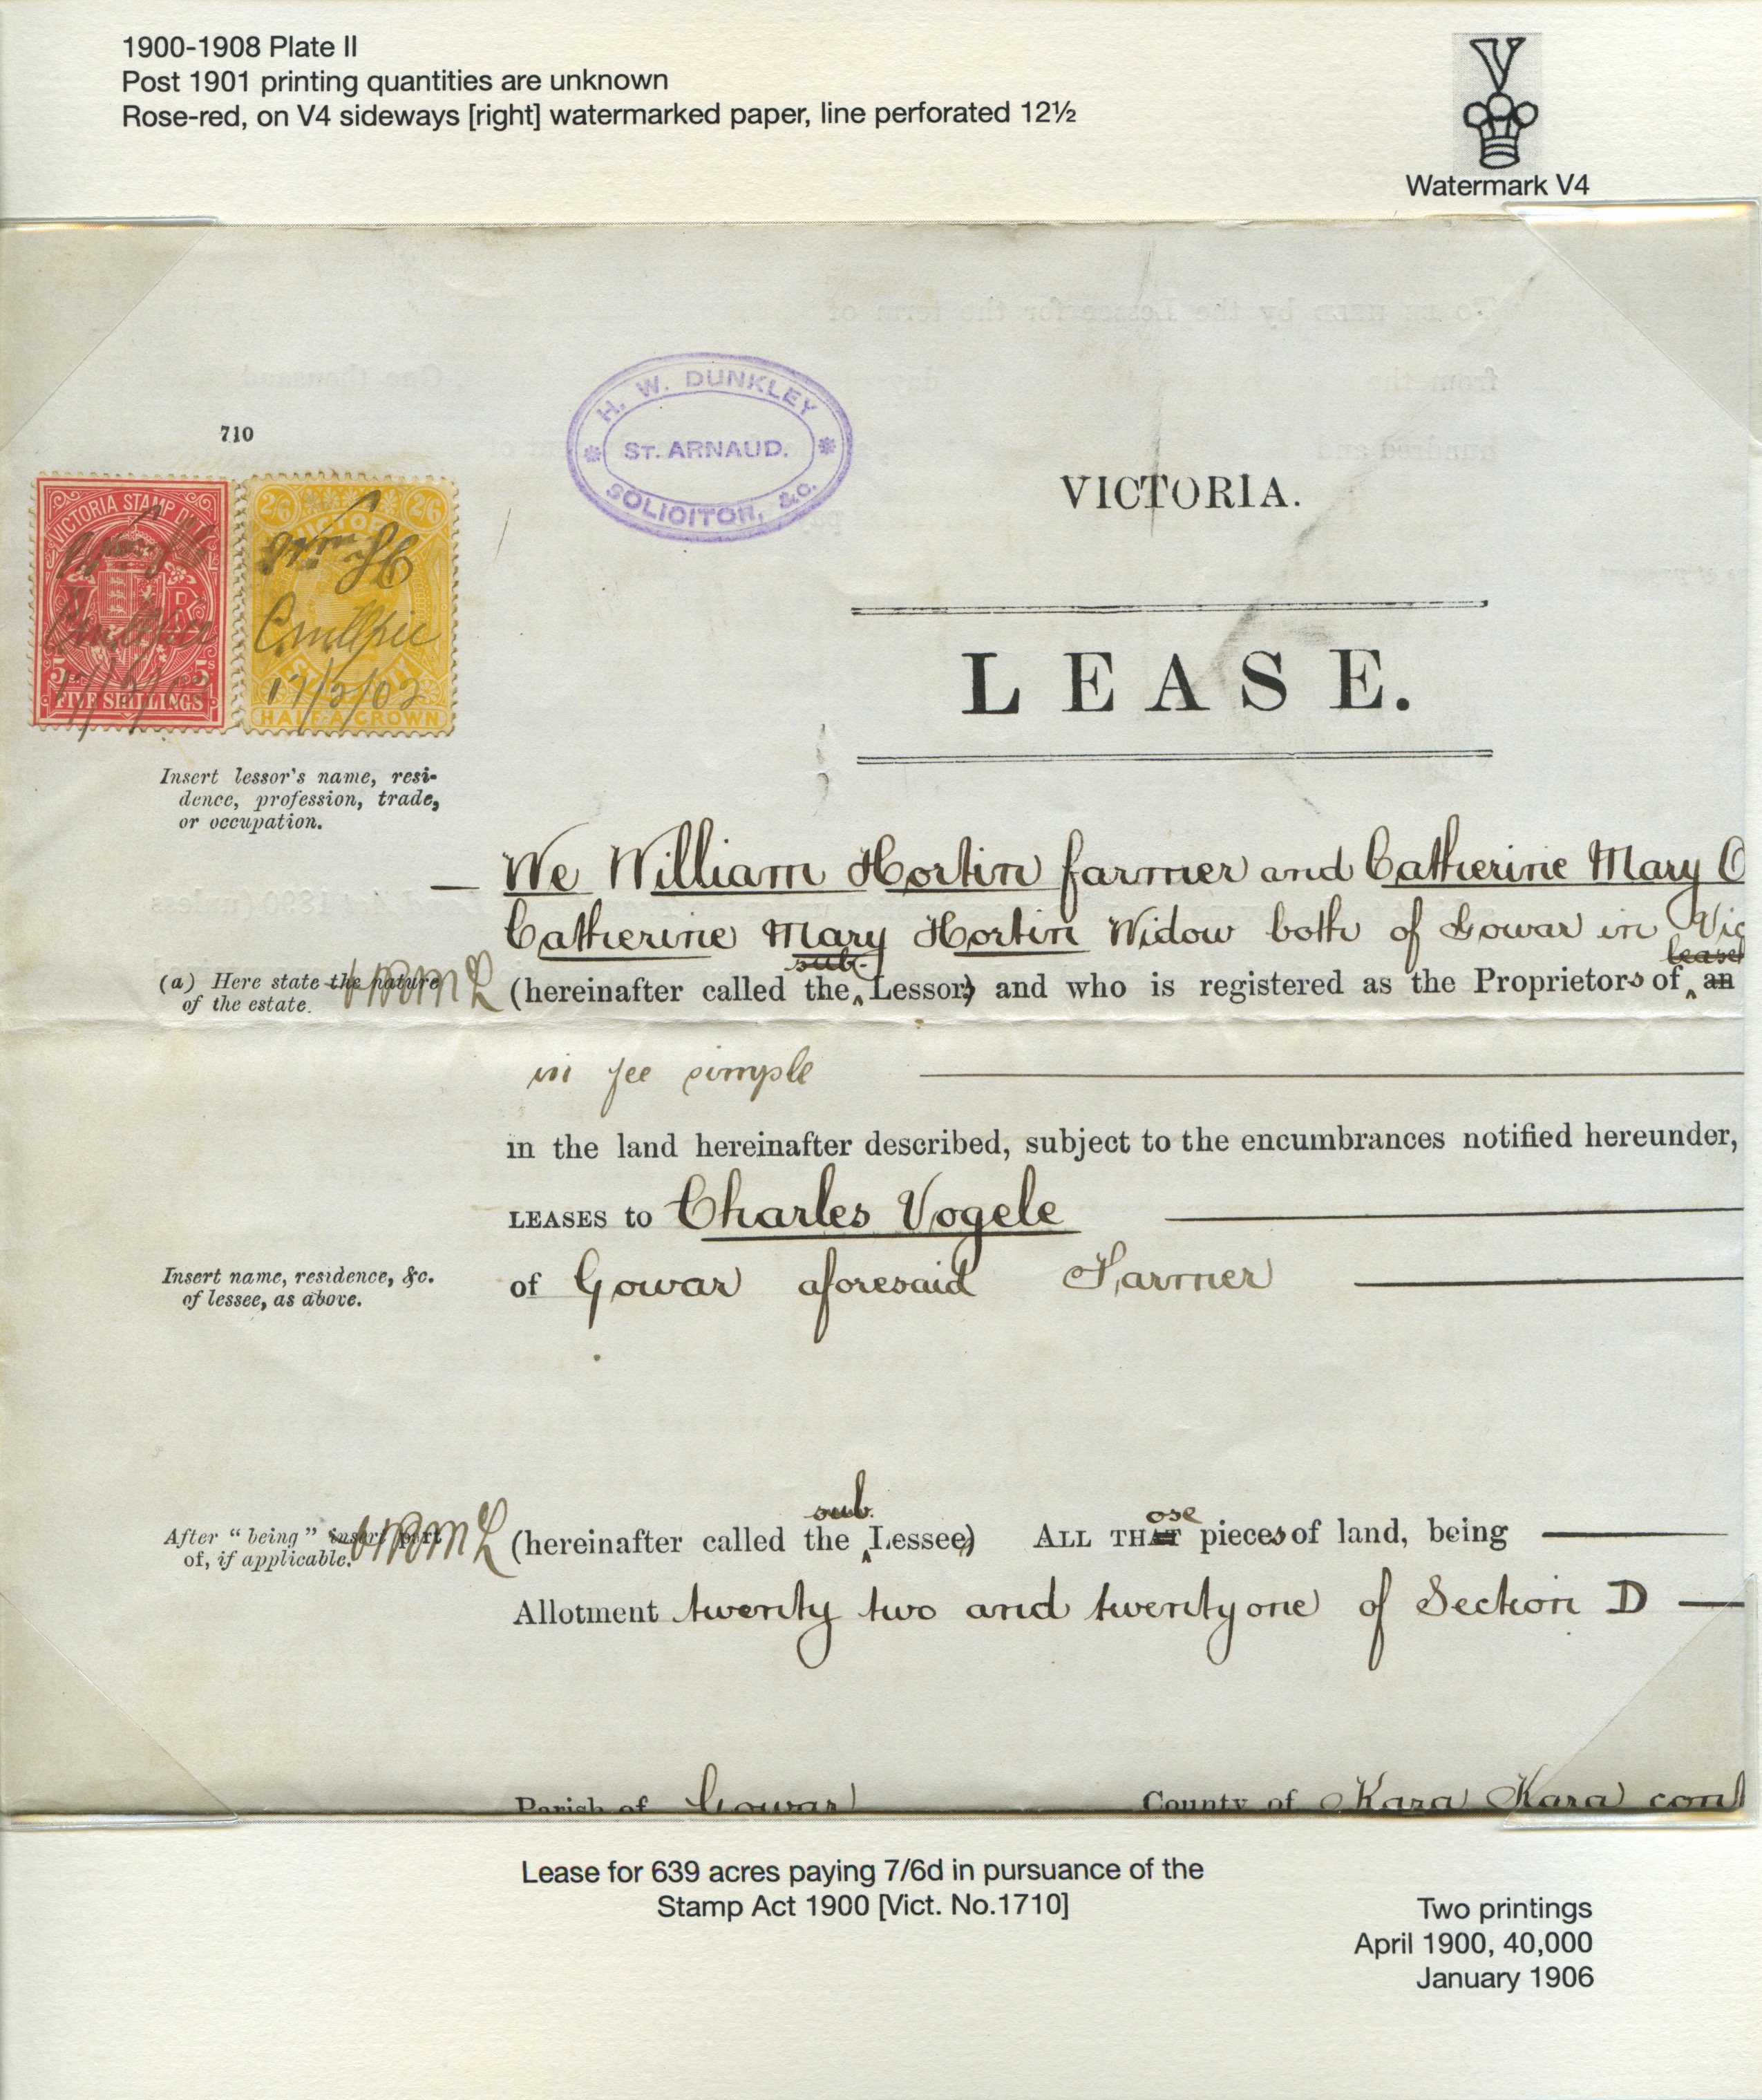 1900-1908 Plate II
Post 1901 printing quantities are unknown
Rose-red, on V4 sideways [right] watermarked paper, line perforated 12½
V
Watermark V4
710
H. W. DUNKLEY
ST. ARNAUD.
SOLICITOR, &c.
VICTORIA STAMP DUTY
5s 5s
FIVE SHILLINGS
2/6 2/6
VICTORIA
HALF-A-CROWN
17/2/02
17/2/02
VICTORIA.
LEASE.
Insert lessor's name, resi-
dence, profession, trade,
or occupation.
We William Hortin farmer and Catherine Mary
Catherine Mary Hortin Widow both of Gowar in Vic
sub-
lease
(a) Here state the nature
of the estate.
(hereinafter called the Lessors) and who is registered as the Proprietors of an
in fee simple
in the land hereinafter described, subject to the encumbrances notified hereunder,
LEASES to Charles Vogele
Insert name, residence, &c.
of lessee, as above.
of Gowar aforesaid Farmer
sub. ose
After "being" insert part
of, if applicable.
(hereinafter called the Lessee) ALL THAT pieces of land, being
Allotment twenty two and twenty one of Section D
Parish of Gowar County of Kara Kara
Lease for 639 acres paying 7/6d in pursuance of the
Stamp Act 1900 [Vict. No.1710]
Two printings
April 1900, 40,000
January 1906